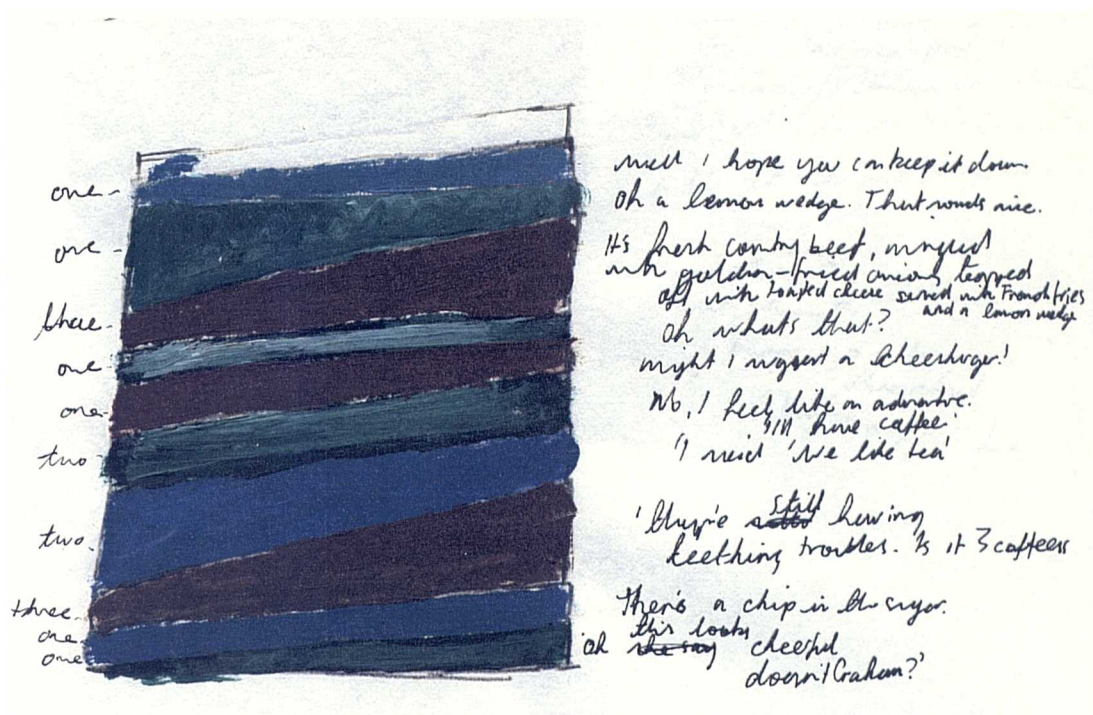 one
one
three
one
one
two
two
three
one
one
well I hope you can keep it down
Oh a lemon wedge. That sounds nice.
It's fresh country beef, mingled
with golden-fried onions topped
off with toasted cheese served with French fries
and a lemon wedge
oh whats that?
might I suggest a Cheeseburger!
No, I feel like an adventure.
'I'll have coffee'
'I said 'we like tea'
'they're still having
teething troubles. Is it 3 coffees
There's a chip in the sugar.
'oh this looks cheerful
doesn't Graham?'